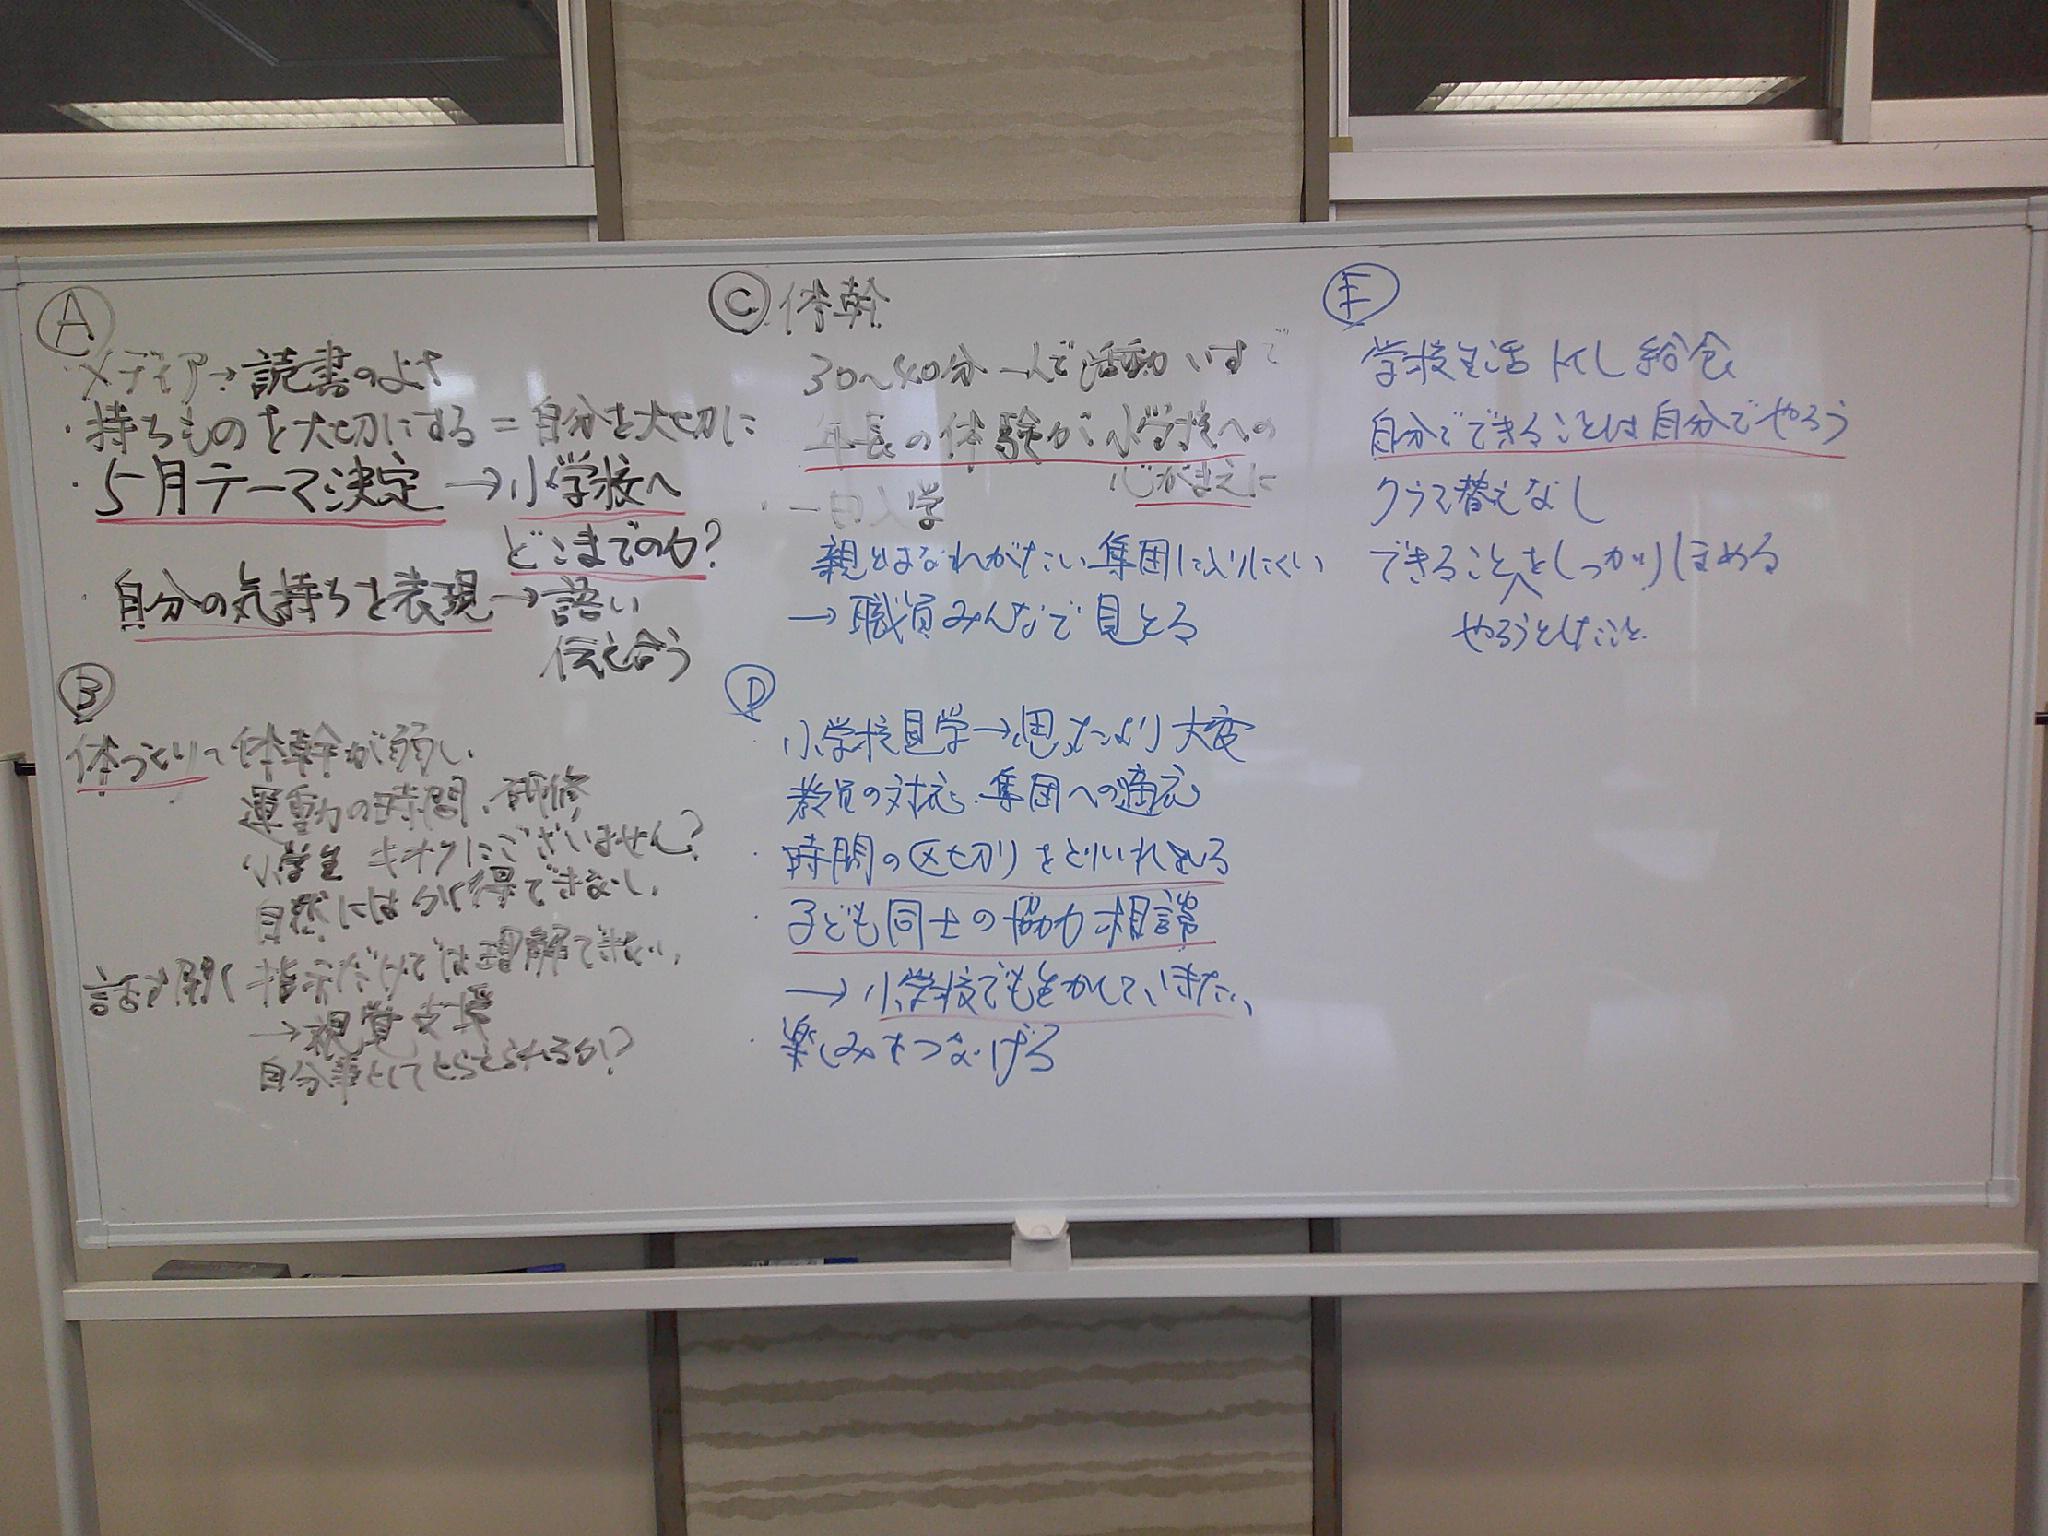 Ⓐ
・メディア→読書のよさ
・持ちものを大切にする=自分を大切に
・5月テーマ決定→小学校へ
どこまでのカ?
・自分の気持ちを表現→語い
伝え合う
Ⓑ
体つくり 体幹が弱い
運動の時間、研修
小学生 キオクにございません?
自然には 得できない、
話を聞く 指示だけでは理解できない、
→視覚支援
自分事としてとらえられるか?
Ⓒ 体幹
30〜40分 一人で活動 いすで
年長の体験が小学校への
心がまえに
・一日入学
親とはなれがたい 集団に入りにくい
→職員みんなで見とる
Ⓓ
小学校見学→思ったより大変
教員の対応 集団への適応
・時間の区切りをとりいれてる
・子ども同士の協力 相談
→小学校でも生かしていきたい、
・楽しみをつなげる
Ⓔ
学校生活 トイレ 給食
自分でできることは自分でやろう
クラス替えなし
できることをしっかりほめる
やろうとしたこと